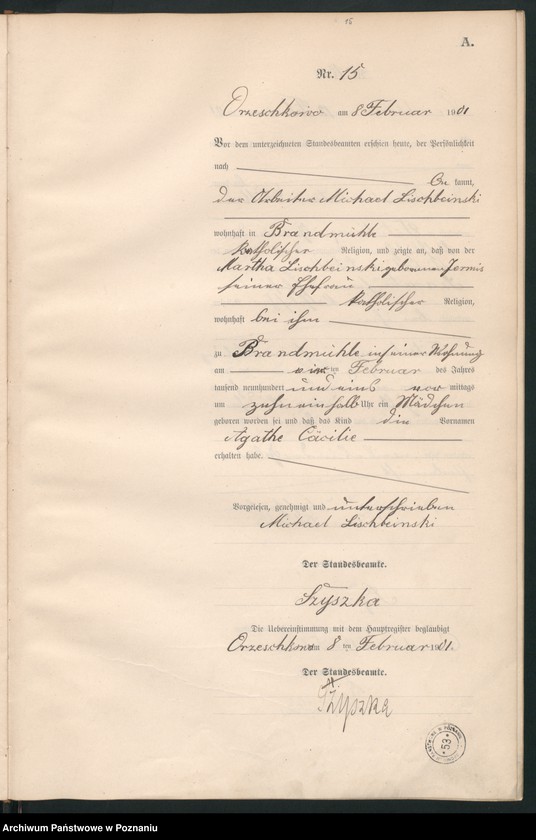 15
A.
Nr. 15
Orzeschkowo am 8 Februar 1901
Vor dem unterzeichneten Standesbeamten erschien heute, der Persönlichkeit
nach
be kannt,
der Arbeiter Michael Lischbeinski
wohnhaft in Brandmühle
katholischer Religion, und zeigte an, daß von der
Martha Lischbeinski geborenen Jermis
seiner Ehefrau
katholischer Religion,
wohnhaft bei ihm
zu Brandmühle in seiner Wohnung
am ten Februar des Jahres
tausend neunhundert und eins vor mittags
um zehn einhalb Uhr ein Mädchen
geboren worden sei und daß das Kind die Vornamen
Agathe Cäcilie
erhalten habe.
Vorgelesen, genehmigt und unterschrieben
Michael Lischbeinski
Der Standesbeamte.
Szyszka
Die Uebereinstimmung mit dem Hauptregister beglaubigt
Orzeschkowo am 8 ten Februar 1901.
Der Standesbeamte.
Szyszka
53
Archiwum Państwowe w Poznaniu